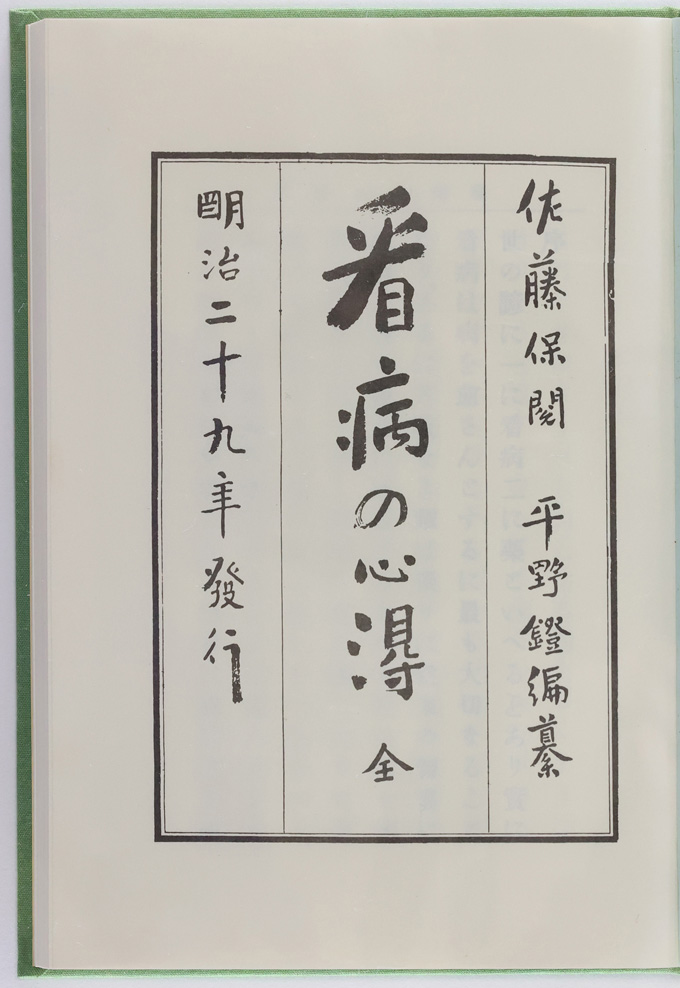 佐藤保閲　平野鐙編纂
看病の心得　全
明治二十九年發行